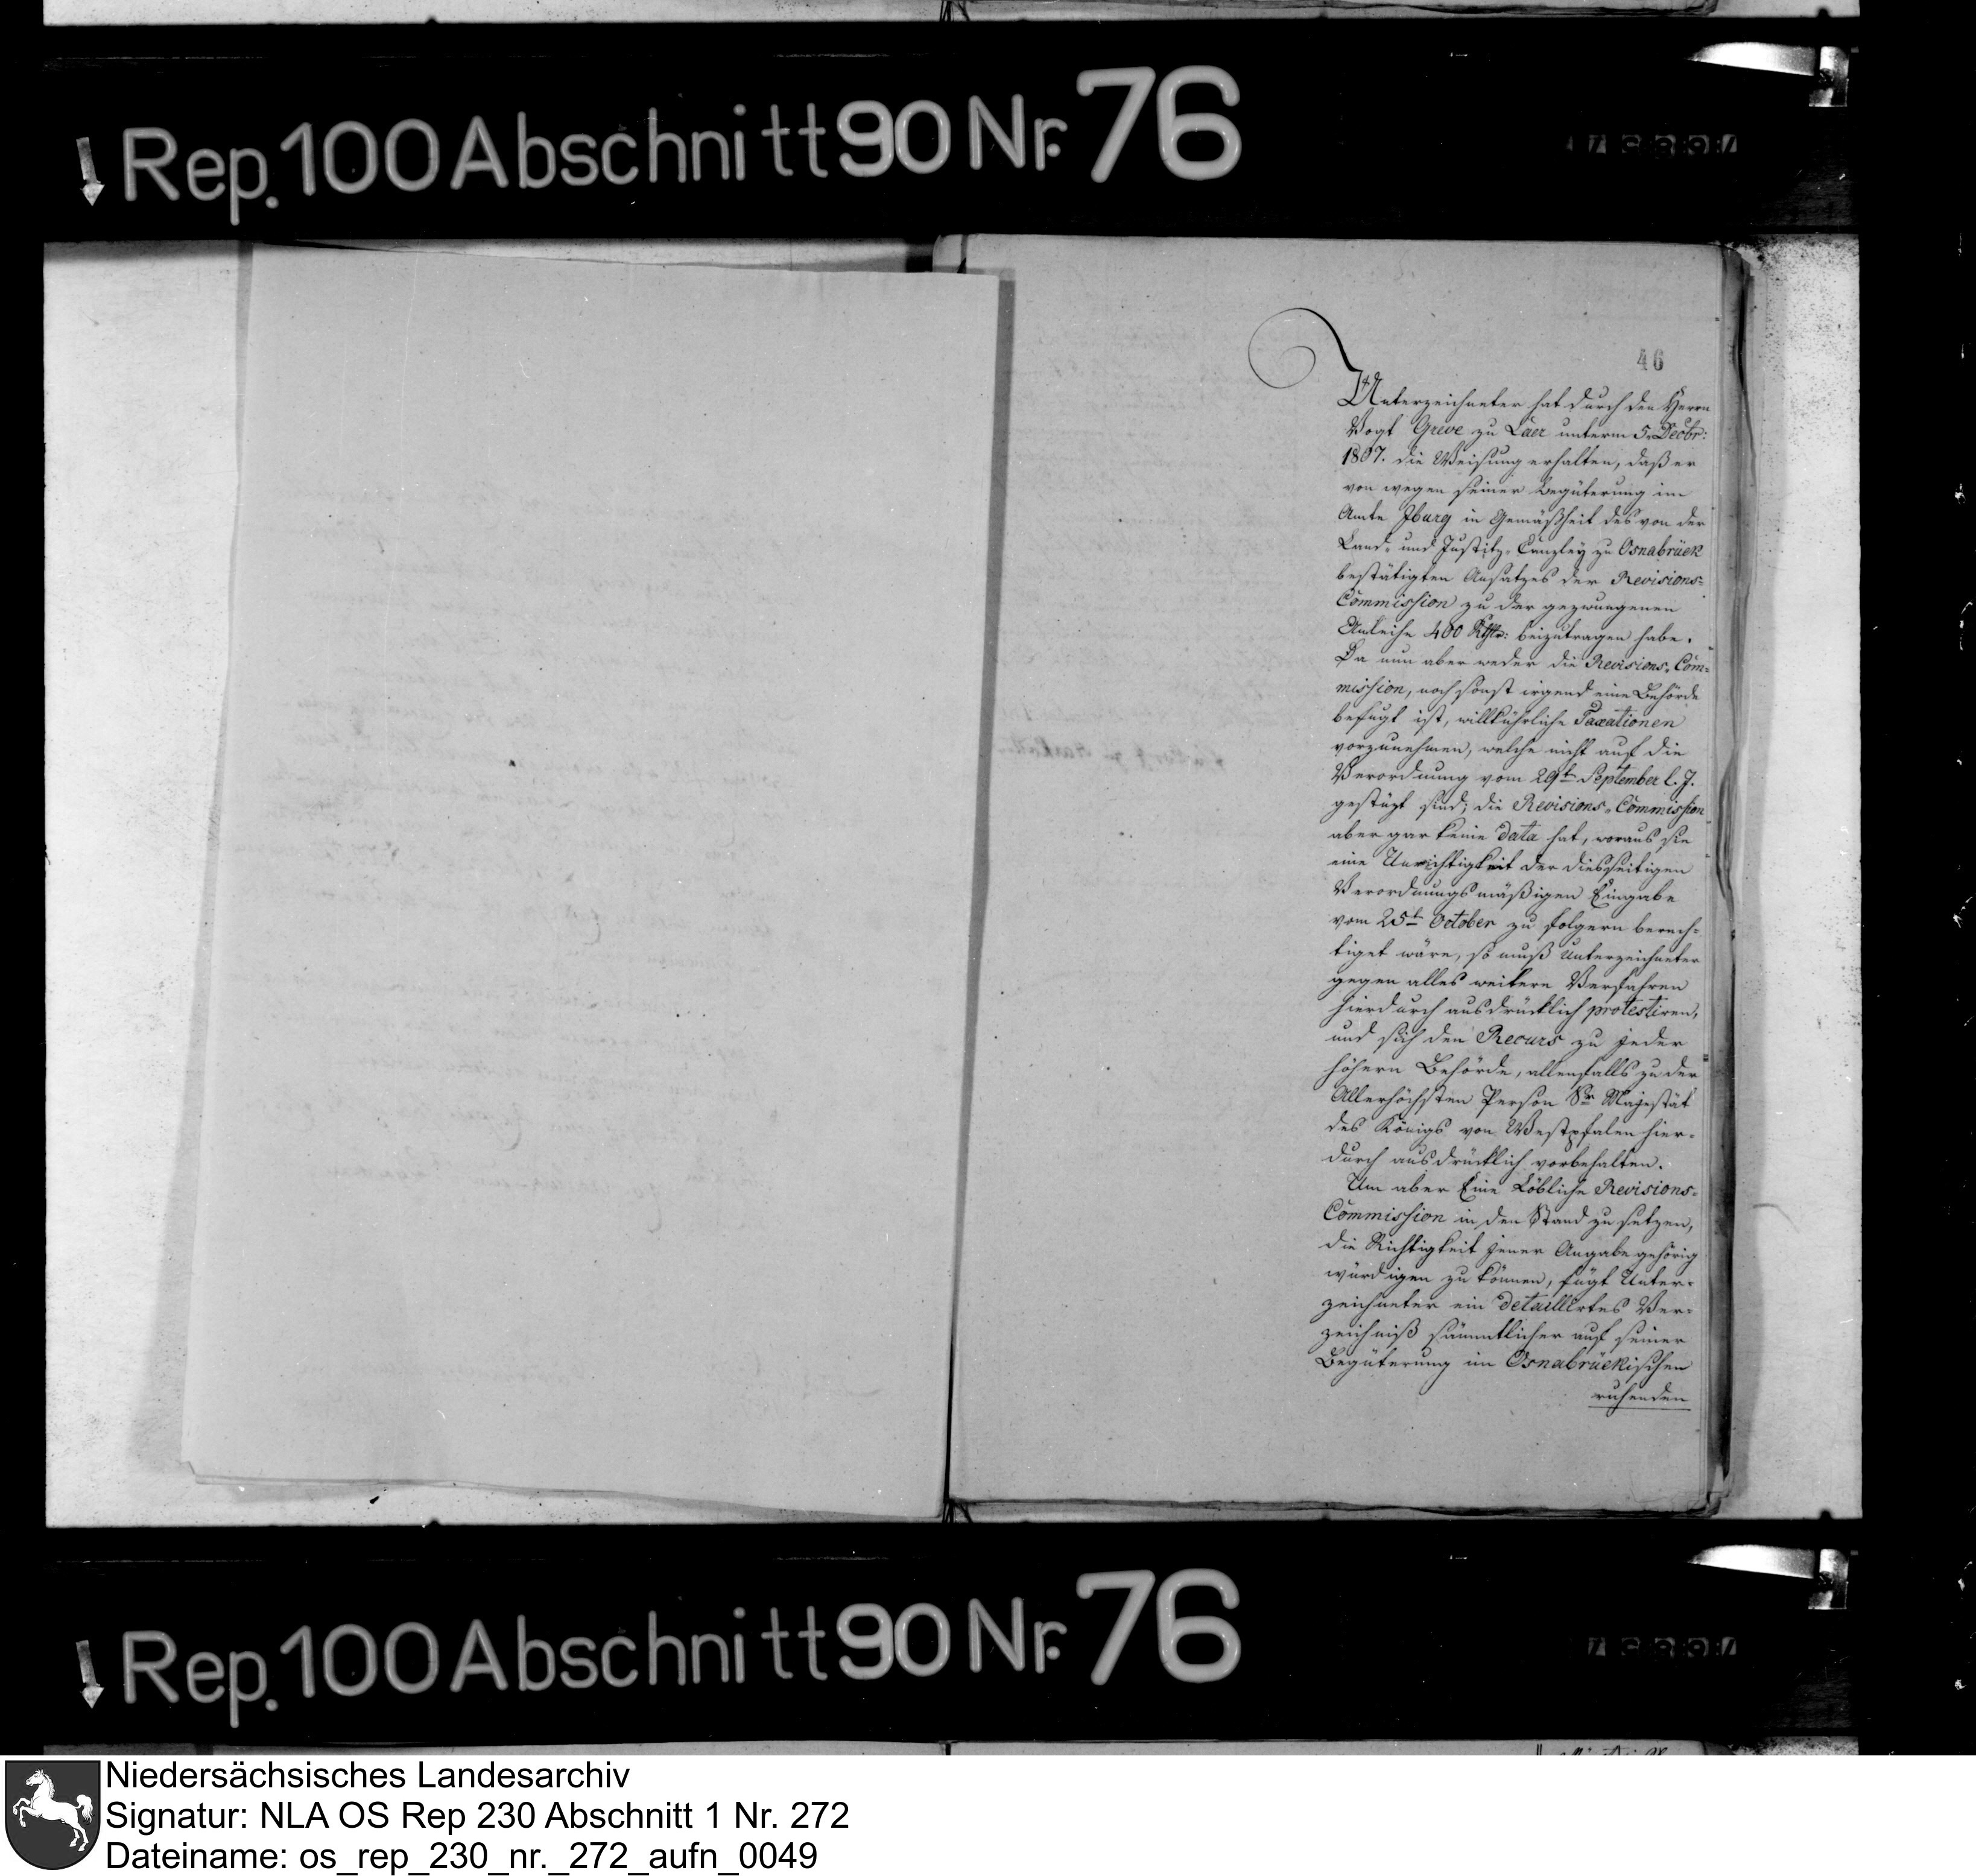 Rep. 100 Abschnitt 90 Nr. 76
46
Unterzeichneter hat durch den Herrn
Vogt Greve zu Laer unterm 5. Decbr:
1807. die Weisung erhalten, daß er
von wegen seiner Begüterung im
Amte Iburg in Gemäßheit des von der
Land- und Justitz-Canzley zu Osnabrück
bestätigten Ansatzes der Revisions-
Commission zu der gezwungenen
Anleihe 400 Rthlr: beizutragen habe.
Da nun aber weder die Revisions-Com-
mission, noch sonst irgend eine Behörde
befugt ist, willkührliche Taxationen
vorzunehmen, welche nicht auf die
Verordnung vom 29t September l. J.
gestüzt sind; die Revisions-Commission
aber gar keine Data hat, woraus sie
eine Unrichtigkeit der diesseitigen
Verordnungsmäßigen Eingabe
vom 25t October zu folgern berech-
tiget wäre, so muß Unterzeichneter
gegen alles weitere Verfahren
hierdurch ausdrücklich protestiren,
und sich den Recurs zu jeder
höhern Behörde, allenfalls zu der
Allerhöchsten Person Sr Majestät
des Königs von Westpfalen hier-
durch ausdrücklich vorbehalten.
Um aber Eine Löbliche Revisions-
Commission in den Stand zu setzen,
die Richtigkeit jener Angabe gehörig
würdigen zu können, fügt Unter-
zeichneter ein detaillirtes Ver-
zeichniß sämmtlicher auf seiner
Begüterung im Osnabrückischen
ruhenden
Rep. 100 Abschnitt 90 Nr. 76
Niedersächsisches Landesarchiv
Signatur: NLA OS Rep 230 Abschnitt 1 Nr. 272
Dateiname: os_rep_230_nr._272_aufn_0049